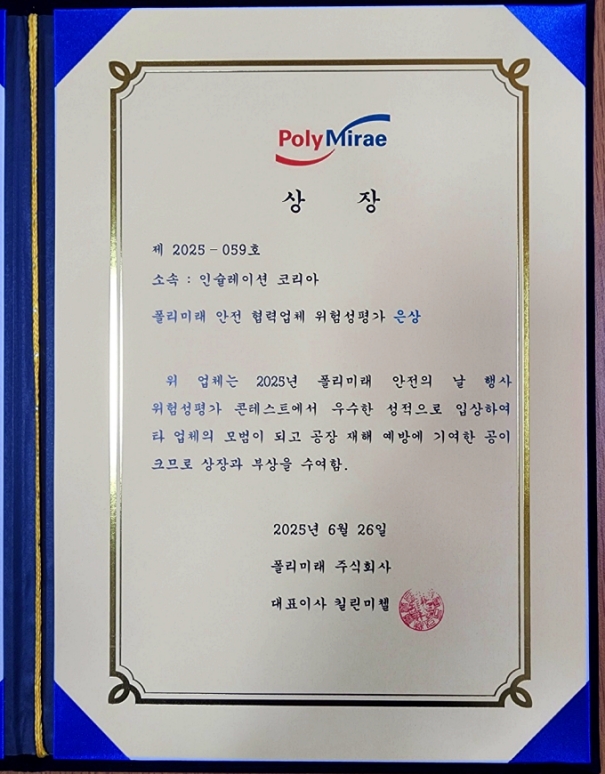 PolyMirae
상 장
제 2025-059호
소속 : 인슐레이션 코리아
폴리미래 안전 협력업체 위험성평가 은상
위 업체는 2025년 폴리미래 안전의 날 행사
위험성평가 콘테스트에서 우수한 성적으로 입상하여
타 업체의 모범이 되고 공장 재해 예방에 기여한 공이
크므로 상장과 부상을 수여함.
2025년 6월 26일
폴리미래 주식회사
대표이사 킬린미첼